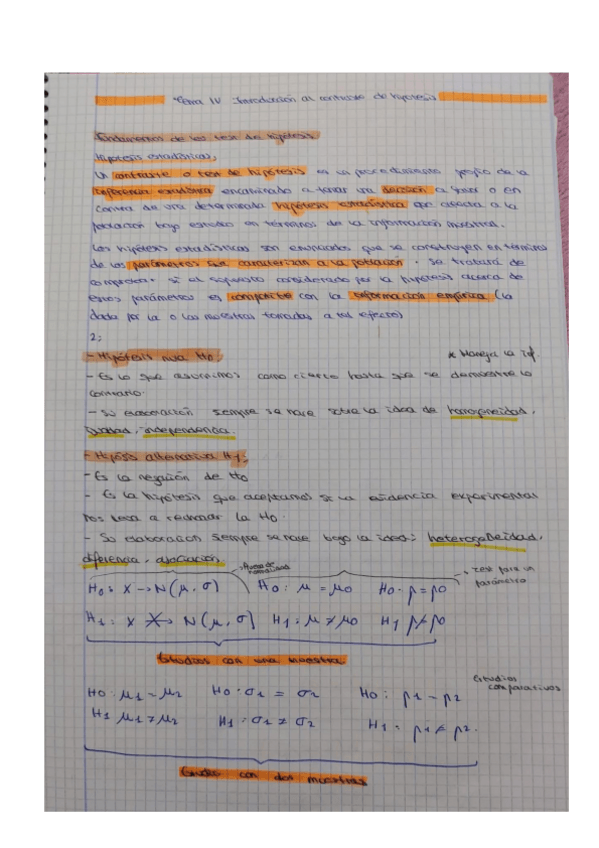 Tema IV Introducción al contraste de hipótesis
Fundamentos de los test de hipótesis.
Hipótesis estadísticas;
Un contraste o test de hipótesis es un procedimiento propio de la
inferencia estadística encaminado a tomar una decisión a favor o en
contra de una determinada hipótesis estadística que afecta a la
población bajo estudio en términos de la información muestral.
Las hipótesis estadísticas son enunciados que se construyen en término
de los parámetros que caracterizan a la población. Se tratará de
comprobar si el supuesto considerado por la hipótesis acerca de
estos parámetros es compatible con la información empírica (la
dada por la o las muestras tomadas a tal efecto)
2;
- Hipótesis nula H0;
* Maneja la inf.
- Es lo que asumimos como cierto hasta que se demuestre lo
contrario.
- Su elaboración siempre se hace sobre la idea de homogeneidad,
igualdad, independencia.
- Hipótesis alternativa H1;
- Es la negación de H0
- Es la hipótesis que aceptamos si la evidencia experimental
nos lleva a rechazar la H0.
- Su elaboración siempre se hace bajo la idea: heterogeneidad,
diferencia, asociación.
normalidad
→ test para un
parámetro
H0: X → N(μ, σ) H0: μ = μ0 H0: p = p0
H1: X ↛ N(μ, σ) H1: μ ≠ μ0 H1 p ≠ p0
Estudios con una muestra
Estudios
comparativos
H0: μ1 = μ2 H0: σ1 = σ2 H0: p1 = p2
H1 μ1 ≠ μ2 H1: σ1 ≠ σ2 H1: p1 ≠ p2.
Estudio con dos muestras